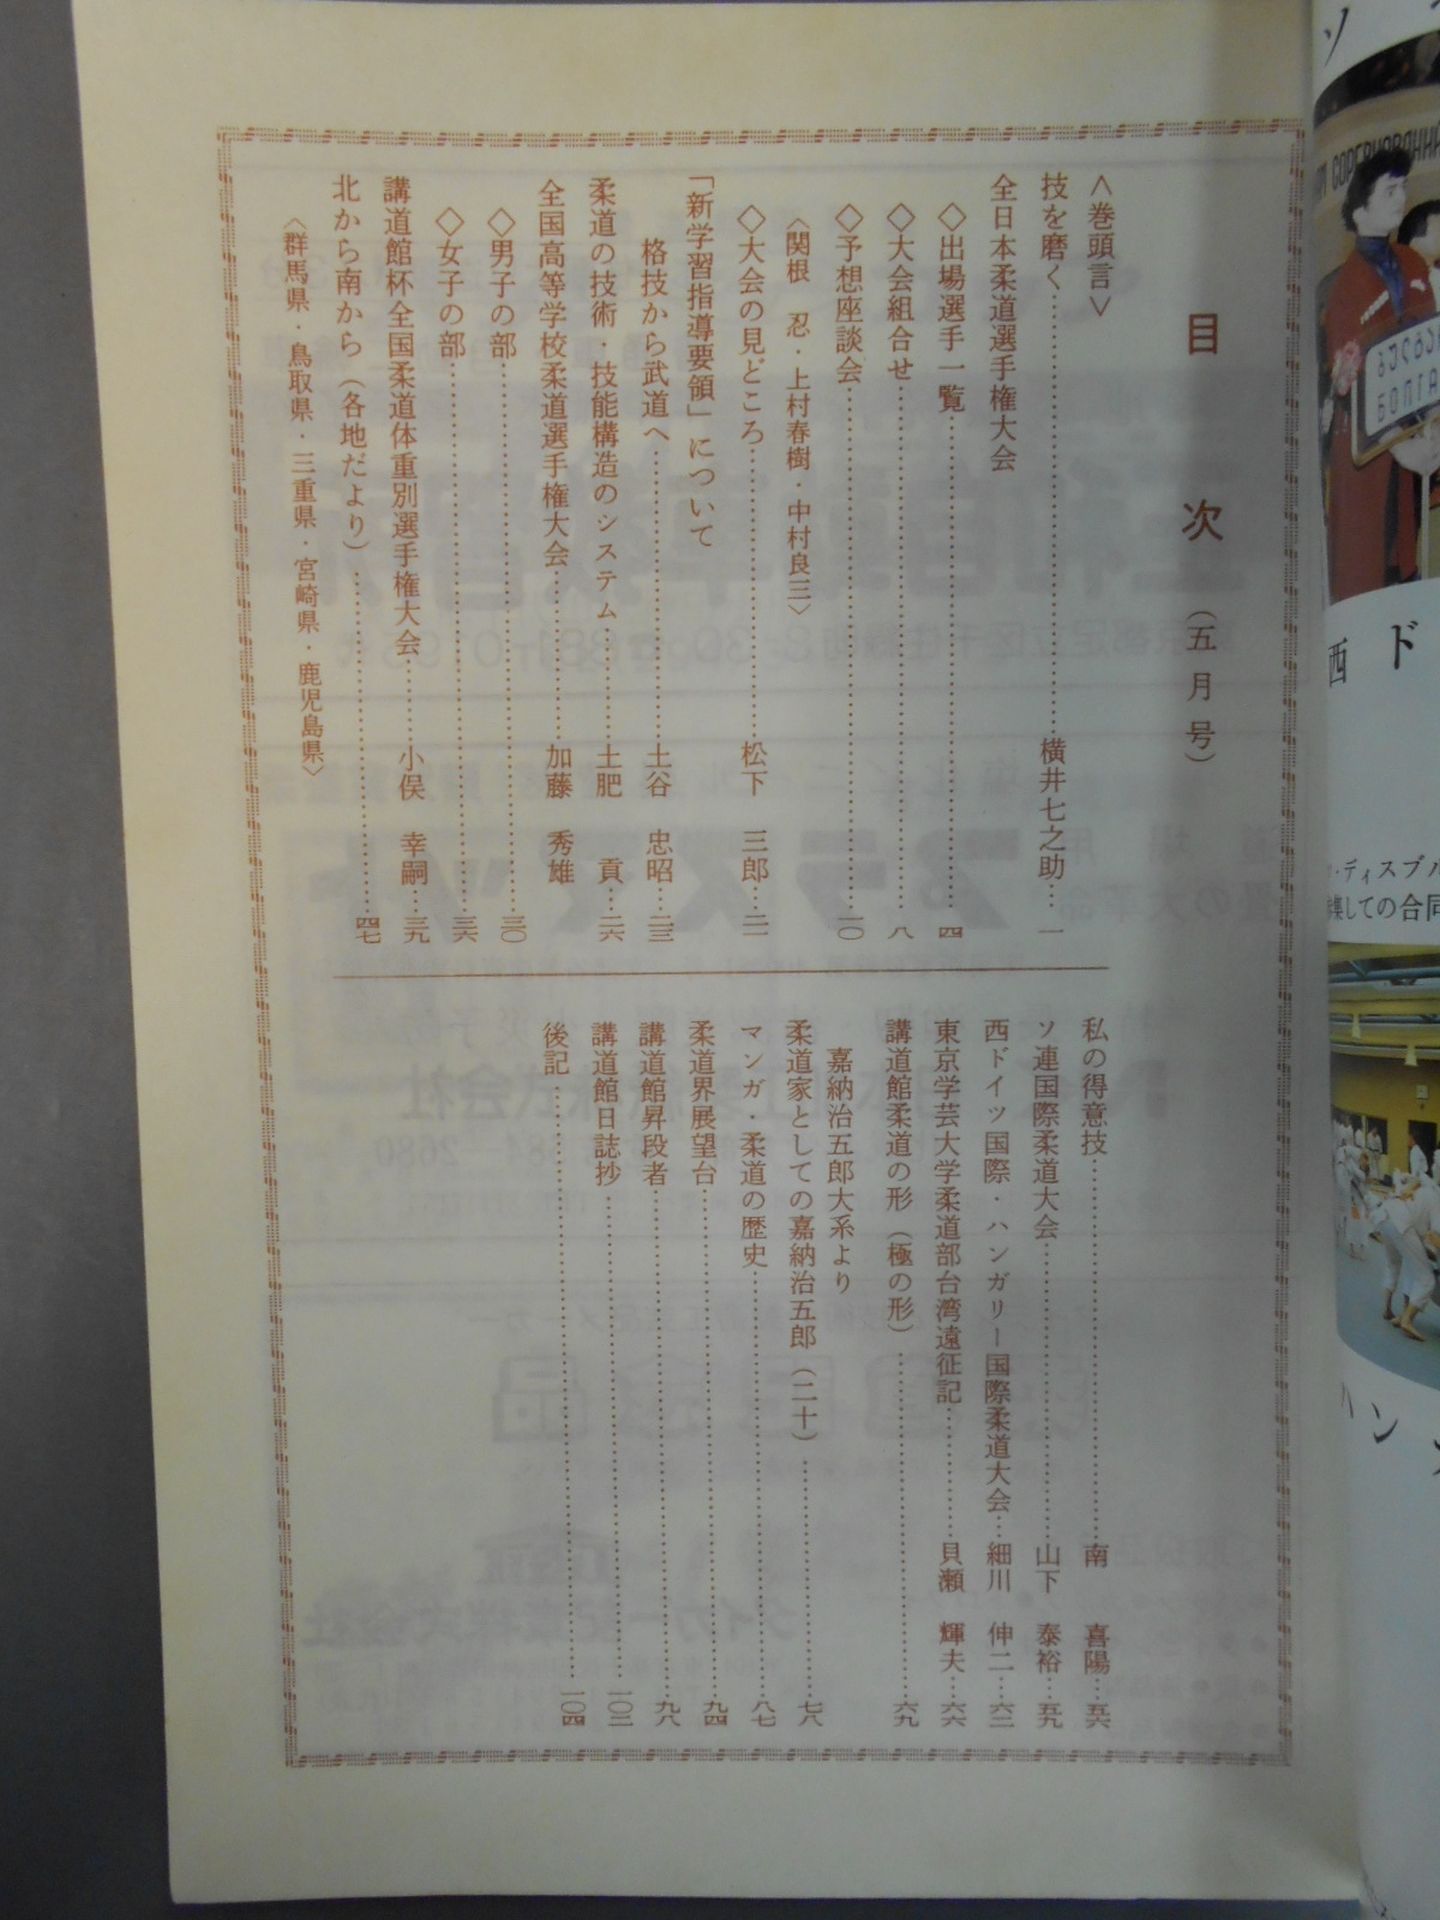 目次（五月号）
＜巻頭言＞
技を磨く…横井七之助…一
全日本柔道選手権大会
◇出場選手一覧…四
◇大会組合せ…八
◇予想座談会…一〇
〈関根　忍・上村春樹・中村良三〉
◇大会の見どころ…松下　三郎…二一
「新学習指導要領」について
格技から武道へ…土谷　忠昭…二三
柔道の技術・技能構造のシステム…土肥　貢…二六
全国高等学校柔道選手権大会…加藤　秀雄
◇男子の部…三〇
◇女子の部…三六
講道館杯全国柔道体重別選手権大会…小俣　幸嗣…三九
北から南から（各地だより）…四七
〈群馬県・鳥取県・三重県・宮崎県・鹿児島県〉
私の得意技…南　喜陽…五六
ソ連国際柔道大会…山下　泰裕…五九
西ドイツ国際・ハンガリー国際柔道大会…細川　伸二…六二
東京学芸大学柔道部台湾遠征記…貝瀬　輝夫…六六
講道館柔道の形（極の形）…六九
嘉納治五郎大系より
柔道家としての嘉納治五郎（二十）…七八
マンガ・柔道の歴史…八七
柔道界展望台…九四
講道館昇段者…九八
講道館日誌抄…一〇二
後記…一〇四
ソ
СОРЕВНОВАНИЙ
西ド
・ディスブル
集しての合同
ハン